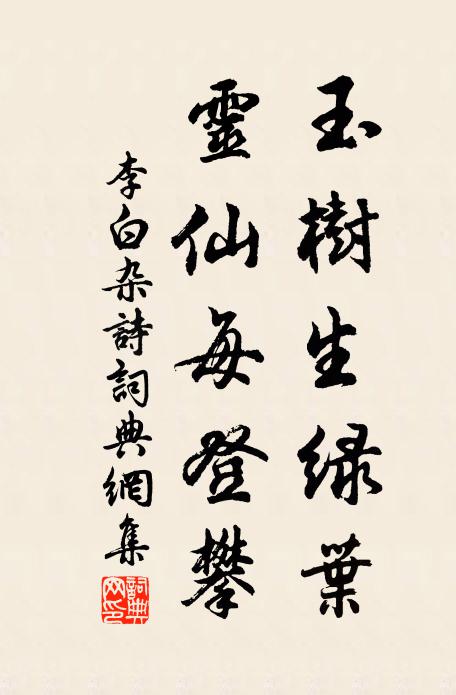 玉樹生緑葉
靈仙每登攀
李白杂詩詞典網集
詞典網印